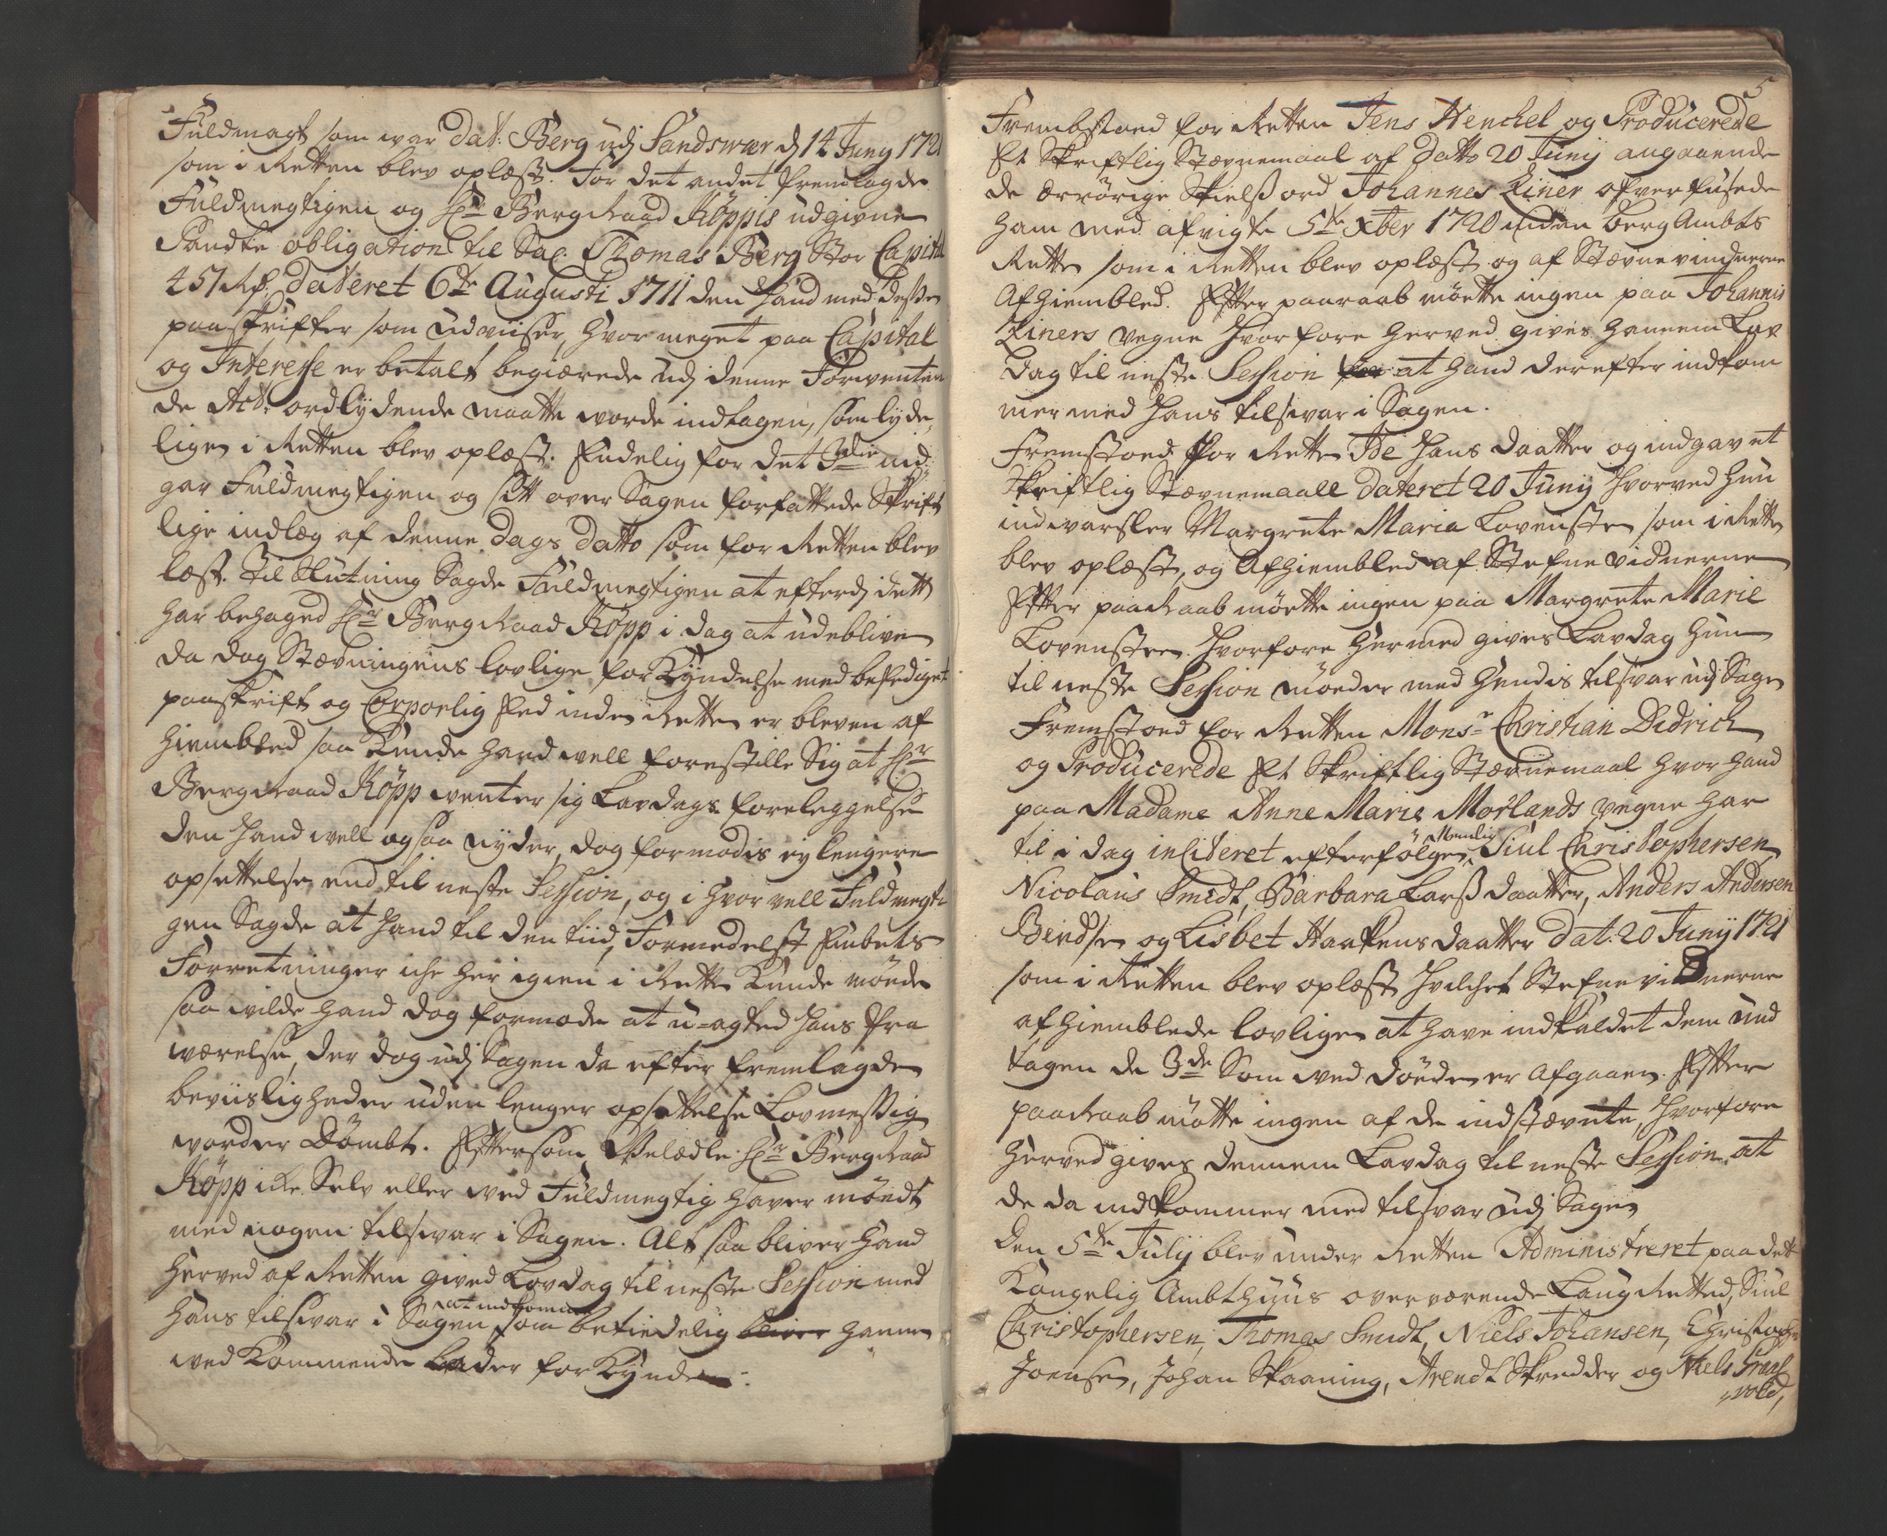 Fuldmagt som war dat: Berg udj Sandswær dj 14 Juny 1721
som i Retten blev oplæst. For det andet fremlagde
Fuldmegtigen og Hr BergRaad Köppis udgivne
Pandte obligation til Sal: Thomas Berg Stor Capital
451 Rdr. dateret 6te Augusti 1711 den hand med deße
paaskrifter som udwiser, hvor meget paa Capital
og Interesse er betalt begiærede udj denne Forwenten
de Act: ordlydende maatte worde indtagen, som lyde-
lige i Retten blev oplæst. Endelig for det 3die ind-
gav Fuldmegtigen og sitt over Sagen forfattede Skrift
lige indlæg af denne dags datto som for Retten blev
læst. Til Slutning Sagde Fuldmegtigen at efterdj dett
har behaged Hr BergRaad Köpp i dag at udeblive
da dog Stævningens lovlige forkyndelse med besediget
paaskrift og Corporlig Eed inden Retten er bleven af
hiembled saa kunde hand well forestille Sig at Hr
BergRaad Köpp wenter sig Lavdags foreleggelse
den hand well ogsaa nyder, dog formodis ej lengere
opsettelse end til neste Session, og i hvorvell Fuldmegti
gen Sagde at hand til den tiid, Formedelst Embets
Forretninger iche her igien i Retten kunde möede
saa wilde hand dog formode at u-agted hans fra
wærelse, der dog udj Sagen da efter fremlagde
beviisligheder uden lenger opsettelse Lovmessig
worder Dömbt. Eftersom Welædle Hr BergRaad
Köpp icke Selv eller wed Fuldmegtig haver möedt
med nogen tilswar i Sagen. Alt saa bliver hand
herved af Retten gived Lovdag til neste Session med
hans tilswar i Sagen at indkomme som betiedelig bliver hannem
wedkommende lader forkynde.
5
Frembstoed for Retten Jens Henchel og Producerede
Et Skriftlig Stævnemaal af datto 20 Junij angaaende
de ærrörige Skielsord Johannes Ziner ofverfusede
ham med afvigte 5te Xber 1720 inden berg Ambts
Retten som i Retten blev oplæst og af Stævnevidnerne
Afhiembled. Efter paaraab möette ingen paa Johannis
Ziners vegne Hvorfore herved gives hannem Lav
dag til neste Session for at hand derefter indkom
mer med hans tilswar i Sagen.
Fremstoed for Retten Ide Hans daatter og indgav et
Skriftlig Stævnemaall dateret 20 Junij hvorved hun
indwarsler Margrete Maria Lovensten som i Retten
blev oplæst, og Afhiembled af Stefnevidnerne
Efter paaRaab möette ingen paa Margrete Marie
Lovensten. Hvorfore hermed gives Lavdag hun
til neste Session möeder med hendis tilsvar udj Sagen
Fremstoed for Retten Monsr Christian Didrich
og Producerede Et Skriftlig Stævnemaal hvor hand
paa Madame Anne Marie Morlands vegne har
til i dag inciteret efterfölgen Nemlig Siul Christophersen,
Nicolaus Smidt, Barbara Larß daatter, Anders Andersen
Bindsen og Lisbet Haakens daatter dat. 20 Junij 1721
som i Retten blev oplæst hvilchet Stefnevidnerne
afhiemblede lovligen at have indkaldet dem und
tagen de 3de Som wed döeden er afgaaen. Efter
paaRaab mötte ingen af de indstævnte, hvorfore
herved gives dennem Lavdag til neste Session at
de da indkommer med tilsvar udj Sagen
Den 5te Julij blev under Retten Administreret paa det
Kongelig Ambthuus overværende LaugRetted, Siul
Christophersen, Thomas Smidt, Niels Johansen, Christopher
Joensen, Johan Skaaning, Arendt Skredder og Niels
wold,